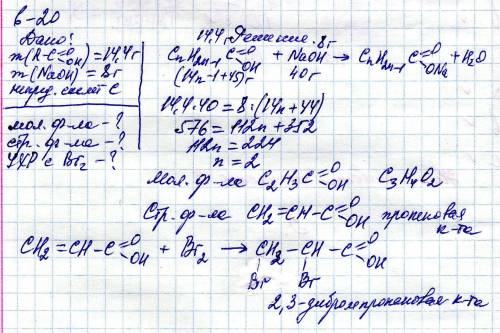 в-20
Дано:
m(R-C=O OH) = 14,4г
m(NaOH) = 8г
непред. связь C
мол. ф-ла - ?
стр. ф-ла - ?
УХР с Br2 - ?
Решение.
14,4г 8г
CnH2n-1 C=O OH + NaOH → CnH2n-1 C=O ONa + H2O
(14n-1+45)г 40г
14,4·40 = 8·(14n+44)
576 = 112n + 352
112n = 224
n = 2
Мол. ф-ла C2H3C=O OH C3H4O2
Стр. ф-ла CH2=CH-C=O OH пропеновая
к-та
CH2=CH-C=O OH + Br2 → CH2-CH-C=O OH
Br Br
2,3-дибромпропановая к-та